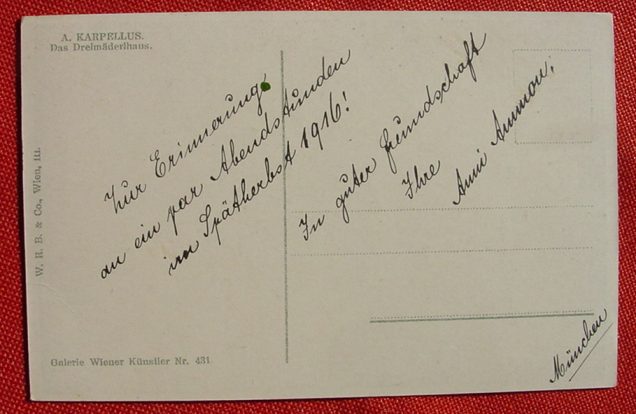 A. KARPELLUS.
Das Dreimäderlhaus.
W. R. B. & Co., Wien, III.
Zur Erinnerung
an ein par Abendstunden
im Spätherbst 1916!
In guter Freundschaft
Ihre
Anni Ammon;
München
Galerie Wiener Künstler Nr. 431